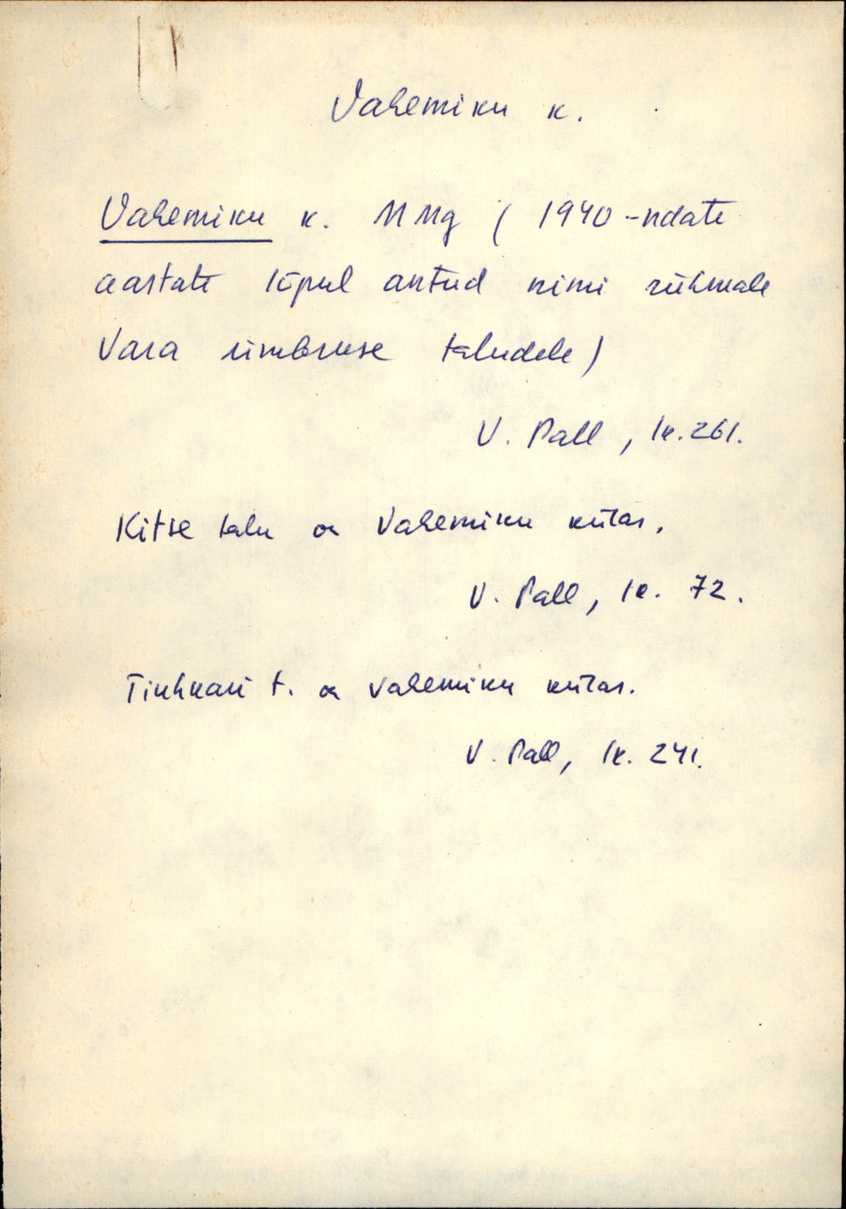 Vahemiku k.
Vahemiku k. MMg ( 1940-ndate
aastate lõpul antud nimi rühmale
Vara ümbruse taludele)
V. Pall, lk. 261.
Kitse talu on Vahemiku külas.
V. Pall, lk. 72.
t. on Vahemiku külas.
V. Pall, lk. 241.